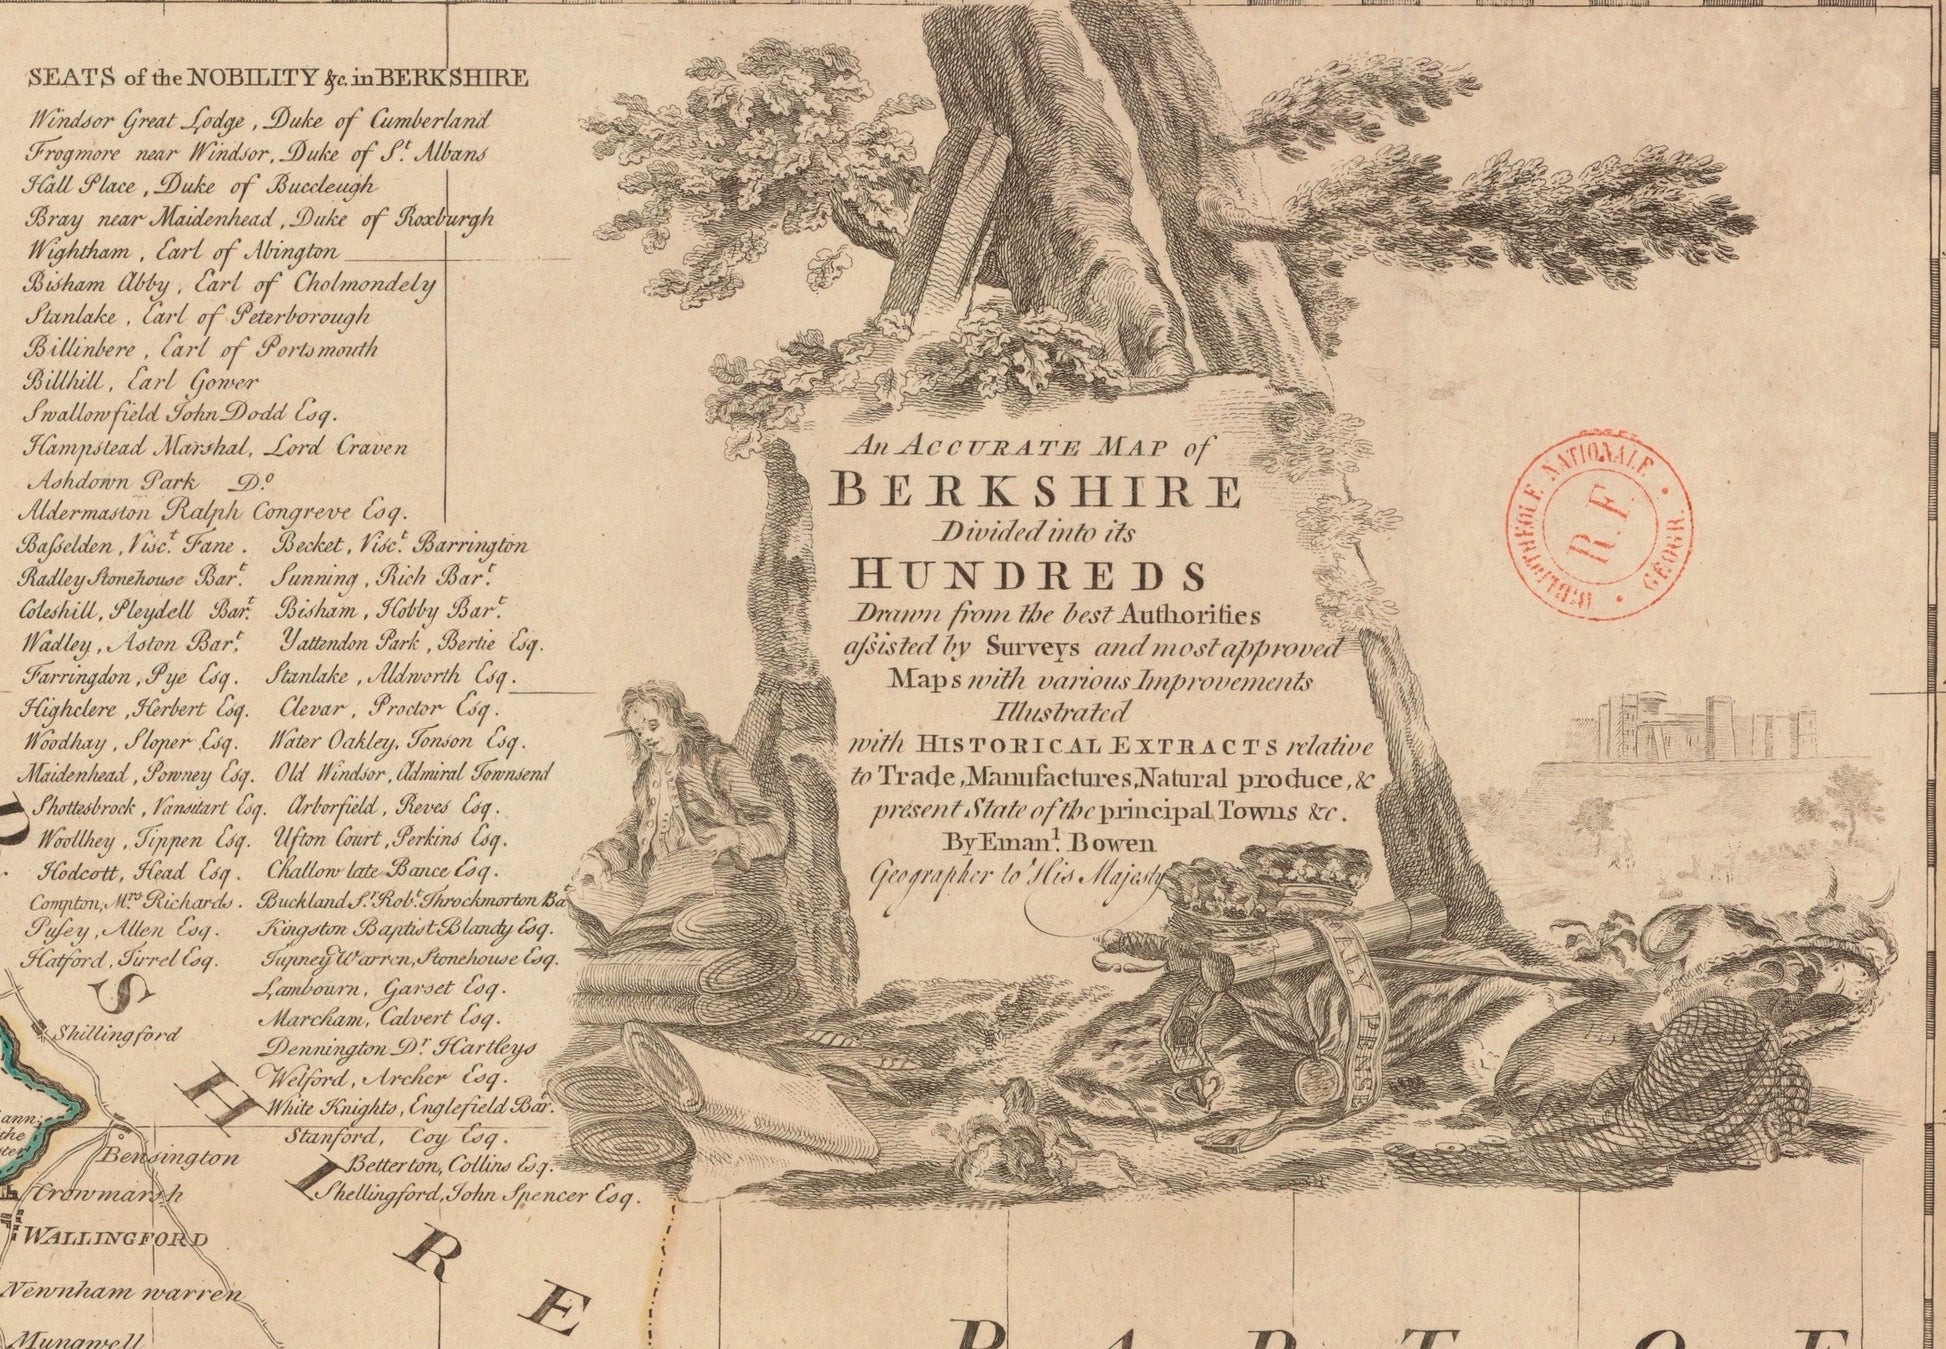 SEATS of the NOBILITY &c. in BERKSHIRE
Windsor Great Lodge, Duke of Cumberland
Frogmore near Windsor, Duke of St. Albans
Hall Place, Duke of Buccleugh
Bray near Maidenhead, Duke of Roxburgh
Wightham, Earl of Abington
Bisham Abby, Earl of Cholmondely
Stanlake, Earl of Peterborough
Billinbere, Earl of Portsmouth
Billhill, Earl Gower
Swallowfield John Dodd Esq.
Hampstead Marshal, Lord Craven
Ashdown Park Do.
Aldermaston Ralph Congreve Esq.
Baſselden, Visct. Fane. Becket, Visct. Barrington
Radley Stonehouse Bart. Sunning, Rich Bart.
Coleshill, Pleydell Bart. Bisham, Hobby Bart.
Wadley, Aston Bart. Yattendon Park, Bertie Esq.
Farringdon, Pye Esq. Stanlake, Aldworth Esq.
Highclere, Herbert Esq. Clevar, Proctor Esq.
Woodhay, Sloper Esq. Water Oakley, Tonson Esq.
Maidenhead, Powney Esq. Old Windsor, Admiral Townsend
Shottesbrock, Vansitart Esq. Arborfield, Reves Esq.
Woollhey, Tippen Esq. Ufton Court, Perkins Esq.
Hodcott, Head Esq. Challow late Bance Esq.
Compton, Mrs Richards. Buckland Sr. Robt. Throckmorton Bat
Puſey, Allen Esq. Kingston Baptist Blandy Esq.
Hatford, Tirrel Esq. Tupney Warren, Stonehouse Esq.
Lambourn, Garset Esq.
Marcham, Calvert Esq.
Dennington Dr Hartleys
Welford, Archer Esq.
White Knights, Englefield Bart.
Stanford, Coy Esq.
Betterton, Collins Esq.
Shellingford, John Spencer Esq.
An ACCURATE MAP of
BERKSHIRE
Divided into its
HUNDREDS
Drawn from the best Authorities
aſsisted by Surveys and most approved
Maps with various Improvements
Illustrated
with HISTORICAL EXTRACTS relative
to Trade, Manufactures, Natural produce, &
present State of the principal Towns &c.
By Emanl. Bowen
Geographer to His Majesty
BIBLIOTHEQUE NATIONALE
R.F.
GÉOGR.
MAL Y PENSE
SHIRE
Shillingford
Bensington
Crowmarsh
WALLINGFORD
Newnham warren
Mungwell
PART OF